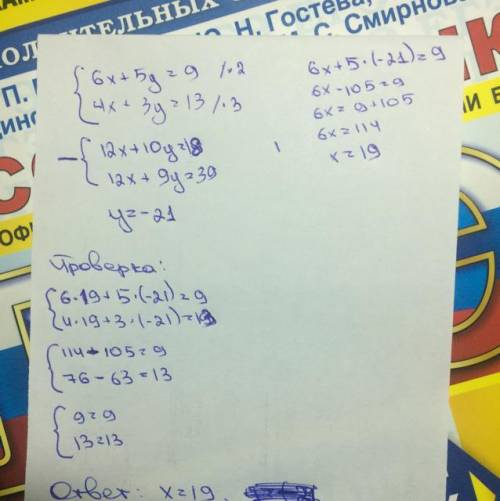 ОЛНИТЕЛЬНЫХ
Ю. Н. Гостева,
С. Смирнов
6x+5y=9 /·2
4x+3y=13 /·3
12x+10y=18
12x+9y=39
y=-21
6x+5·(-21)=9
6x-105=9
6x=9+105
6x=114
x=19
Проверка:
6·19+5·(-21)=9
4·19+3·(-21)=13
114-105=9
76-63=13
9=9
13=13
Ответ: x=19,